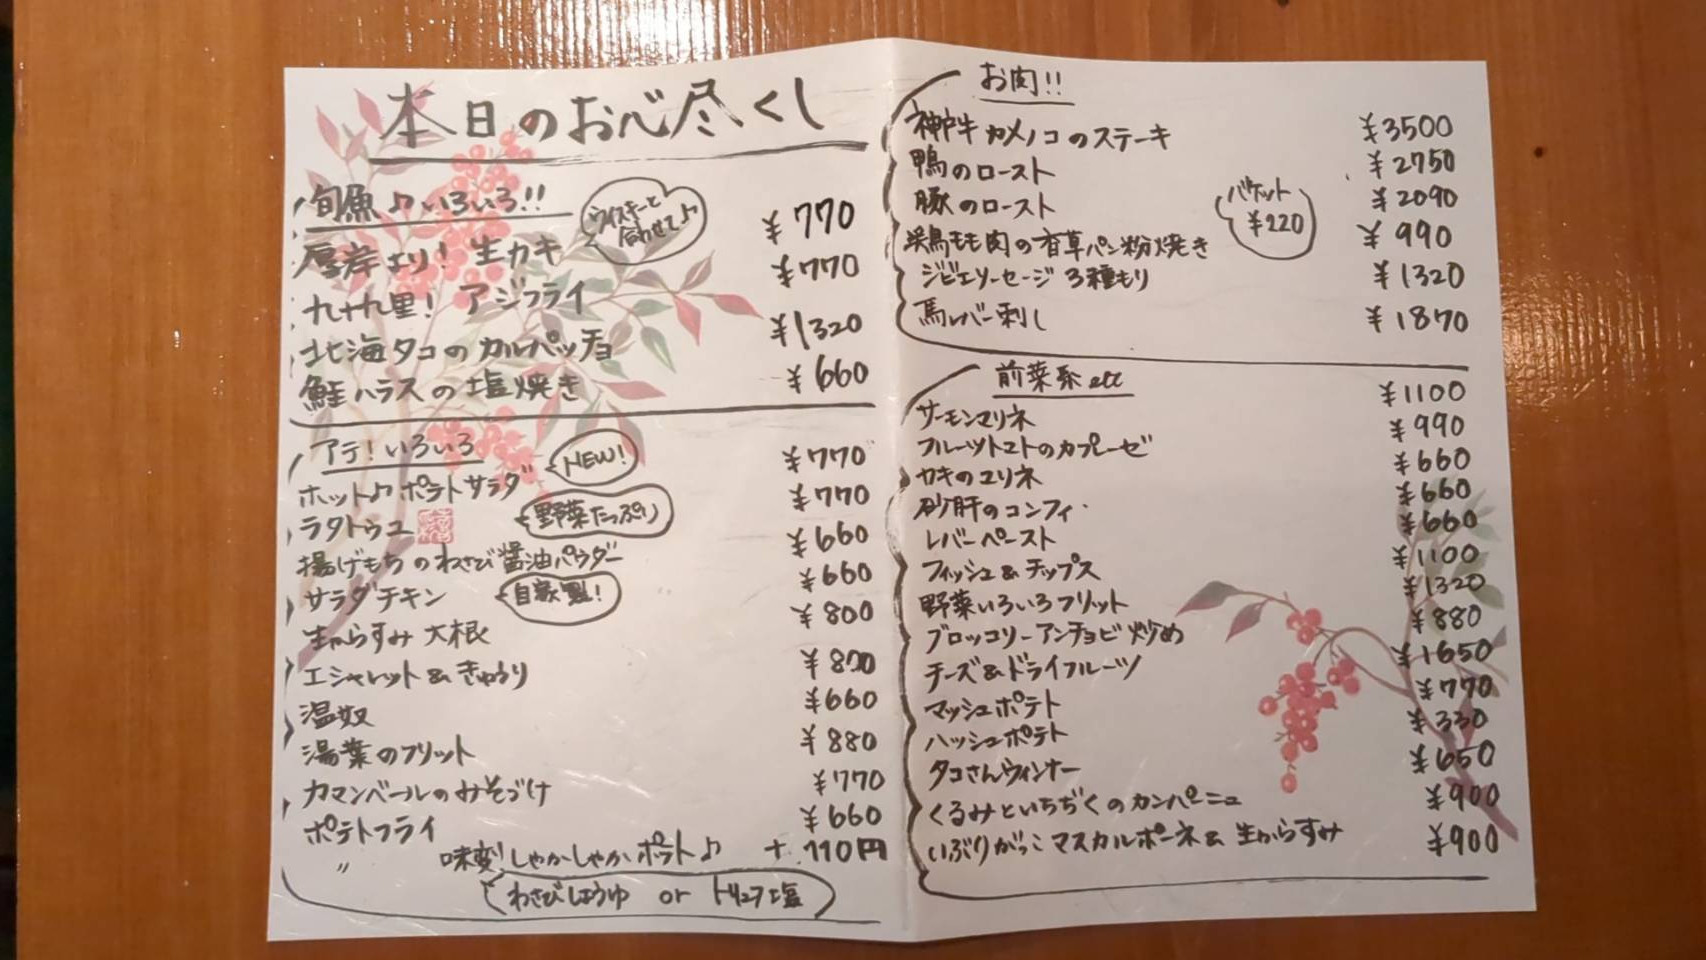 本日のお心尽くし
旬魚♪いろいろ!!
ウイスキーと
合わせて♪
厚岸より! 生カキ ¥770
九十九里! アジフライ ¥770
北海タコのカルパッチョ ¥1320
鮭ハラスの塩焼き ¥660
アテ!いろいろ
ホット♪ポテトサラダ NEW! ¥770
ラタトゥユ 野菜たっぷり ¥770
揚げもちのわさび醤油パウダー ¥660
サラダチキン 自家製! ¥660
生からすみ大根 ¥800
エシャレット&きゅうり ¥800
温奴 ¥660
湯葉のフリット ¥880
カマンベールのみそづけ ¥770
ポテトフライ ¥660
〃 味変!しゃかしゃかポテト♪ +110円
わさびしょうゆ or トリュフ塩
お肉!!
神戸牛カメノコのステーキ ¥3500
鴨のロースト ¥2750
豚のロースト ¥2090
バケット
¥220
鶏もも肉の香草パン粉焼き ¥990
ジビエソーセージ 3種もり ¥1320
馬レバー刺し ¥1870
前菜系etc
サーモンマリネ ¥1100
フルーツトマトのカプレーゼ ¥990
カキのマリネ ¥660
砂肝のコンフィ ¥660
レバーペースト ¥660
フィッシュ&チップス ¥1100
野菜いろいろフリット ¥1320
ブロッコリーアンチョビ炒め ¥880
チーズ&ドライフルーツ ¥1650
マッシュポテト ¥770
ハッシュポテト ¥330
タコさんウィンナー ¥650
くるみといちぢくのカンパーニュ ¥900
いぶりがっこマスカルポーネ&生からすみ ¥900